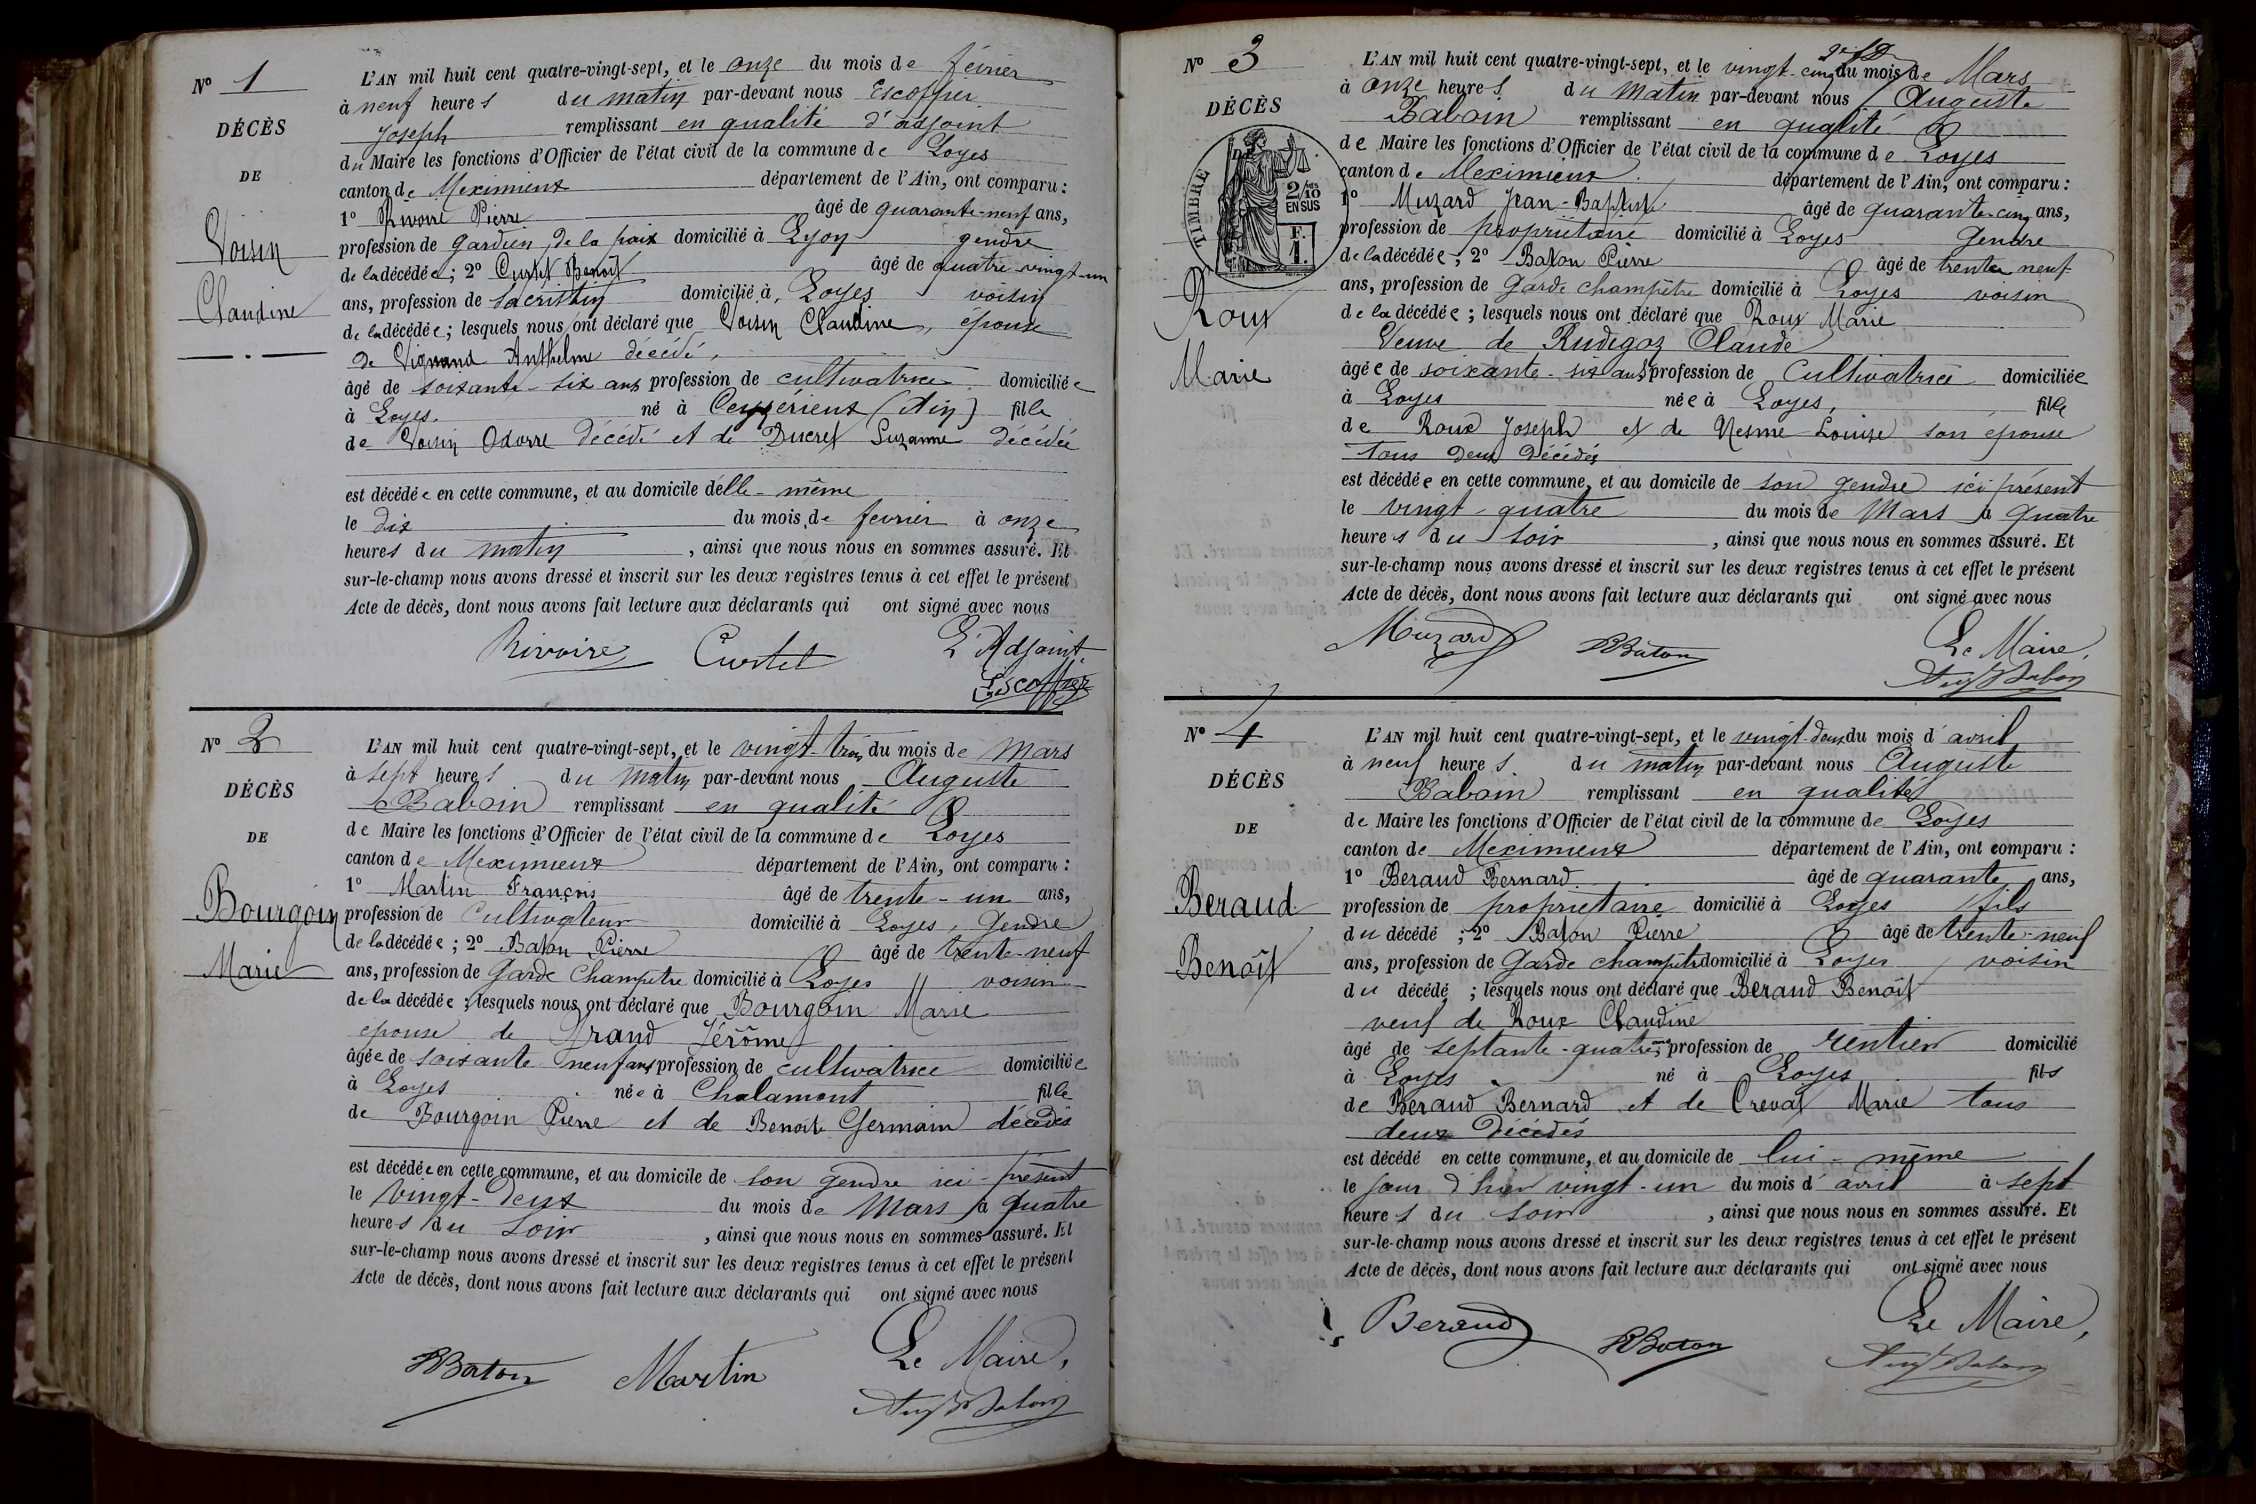 N° 1
DÉCÈS
DE
Voisin
Claudine
L'AN mil huit cent quatre-vingt-sept, et le onze du mois de février
à neuf heures du matin par-devant nous Escoffier
Joseph remplissant en qualité d'adjoint
du Maire les fonctions d'Officier de l'état civil de la commune de Loyes
canton de Meximieux département de l'Ain, ont comparu :
1° Rivoire Pierre âgé de quarante-neuf ans,
profession de gardien de la paix domicilié à Lyon gendre
de la décédée ; 2° Curtet Benoît âgé de quatre-vingt-un
ans, profession de sacristin domicilié à Loyes voisin
de la décédée ; lesquels nous ont déclaré que Voisin Claudine, épouse
de Vignand Anthelme décédé,
âgé de soixante-six ans profession de cultivatrice domiciliée
à Loyes. né à Ceyzérieux (Ain) fille
de Voisin Odorre décédé et de Ducret Suzanne décédée
est décédée en cette commune, et au domicile d'elle-même
le dix du mois de fevrier à onze
heures du matin, ainsi que nous nous en sommes assuré. Et
sur-le-champ nous avons dressé et inscrit sur les deux registres tenus à cet effet le présent
Acte de décès, dont nous avons fait lecture aux déclarants qui ont signé avec nous
Rivoire Curtet L'Adjoint
Escoffier
N° 2
DÉCÈS
DE
Bourgoin
Marie
L'AN mil huit cent quatre-vingt-sept, et le vingt-trois du mois de Mars
à sept heures du matin par-devant nous Auguste
Baboin remplissant en qualité
de Maire les fonctions d'Officier de l'état civil de la commune de Loyes
canton de Meximieux département de l'Ain, ont comparu :
1° Martin François âgé de trente-un ans,
profession de Cultivateur domicilié à Loyes, Gendre
de la décédée ; 2° Baton Pierre âgé de trente-neuf
ans, profession de Garde Champetre domicilié à Loyes voisin
de la décédée ; lesquels nous ont déclaré que Bourgoin Marie
épouse de Grand Jérôme
âgée de soixante neuf ans profession de cultivatrice domiciliée
à Loyes née à Chalamont fille
de Bourgoin Pierre et de Benoite Germain décédés
est décédée en cette commune, et au domicile de son gendre ici-présent
le vingt-deux du mois de Mars à quatre
heures du soir, ainsi que nous nous en sommes assuré. Et
sur-le-champ nous avons dressé et inscrit sur les deux registres tenus à cet effet le présent
Acte de décès, dont nous avons fait lecture aux déclarants qui ont signé avec nous
PBaton Martin Le Maire,
Aug Baboin
N° 3
DÉCÈS
TIMBRE
2/10 EN SUS
F. 1.
Roux
Marie
L'AN mil huit cent quatre-vingt-sept, et le vingt-cinq du mois de Mars
à onze heures du matin par-devant nous Auguste
Baboin remplissant en qualité
de Maire les fonctions d'Officier de l'état civil de la commune de Loyes
canton de Meximieux département de l'Ain, ont comparu :
1° Muzard Jean-Baptiste âgé de quarante-cinq ans,
profession de propriétaire domicilié à Loyes Gendre
de la décédée ; 2° Baton Pierre âgé de trente neuf
ans, profession de Garde champêtre domicilié à Loyes voisin
de la décédée ; lesquels nous ont déclaré que Roux Marie
Veuve de Rudigoz Claude
âgée de soixante-six ans profession de Cultivatrice domiciliée
à Loyes née à Loyes, fille
de Roux Joseph et de Nesme Louise son épouse
tous deux décédés
est décédée en cette commune, et au domicile de son gendre ici présent
le vingt-quatre du mois de Mars à Quatre
heures du soir, ainsi que nous nous en sommes assuré. Et
sur-le-champ nous avons dressé et inscrit sur les deux registres tenus à cet effet le présent
Acte de décès, dont nous avons fait lecture aux déclarants qui ont signé avec nous
Muzard PBaton Le Maire,
Aug Baboin
N° 4
DÉCÈS
DE
Beraud
Benoît
L'AN mil huit cent quatre-vingt-sept, et le vingt-deux du mois d'avril
à neuf heures du matin par-devant nous Auguste
Baboin remplissant en qualité
de Maire les fonctions d'Officier de l'état civil de la commune de Loyes
canton de Meximieux département de l'Ain, ont comparu :
1° Beraud Bernard âgé de quarante ans,
profession de propriétaire domicilié à Loyes fils
du décédé ; 2° Baton Pierre âgé de trente-neuf
ans, profession de Garde champêtre domicilié à Loyes voisin
du décédé ; lesquels nous ont déclaré que Beraud Benoît
veuf de Roux Claudine
âgé de septante-quatre ans profession de rentier domicilié
à Loyes né à Loyes fils
de Beraud Bernard et de Crevat Marie tous
deux décédés
est décédé en cette commune, et au domicile de lui-même
le jour d'hier vingt-un du mois d'avril à sept
heures du soir, ainsi que nous nous en sommes assuré. Et
sur-le-champ nous avons dressé et inscrit sur les deux registres tenus à cet effet le présent
Acte de décès, dont nous avons fait lecture aux déclarants qui ont signé avec nous
Beraud PBaton Le Maire,
Aug Baboin